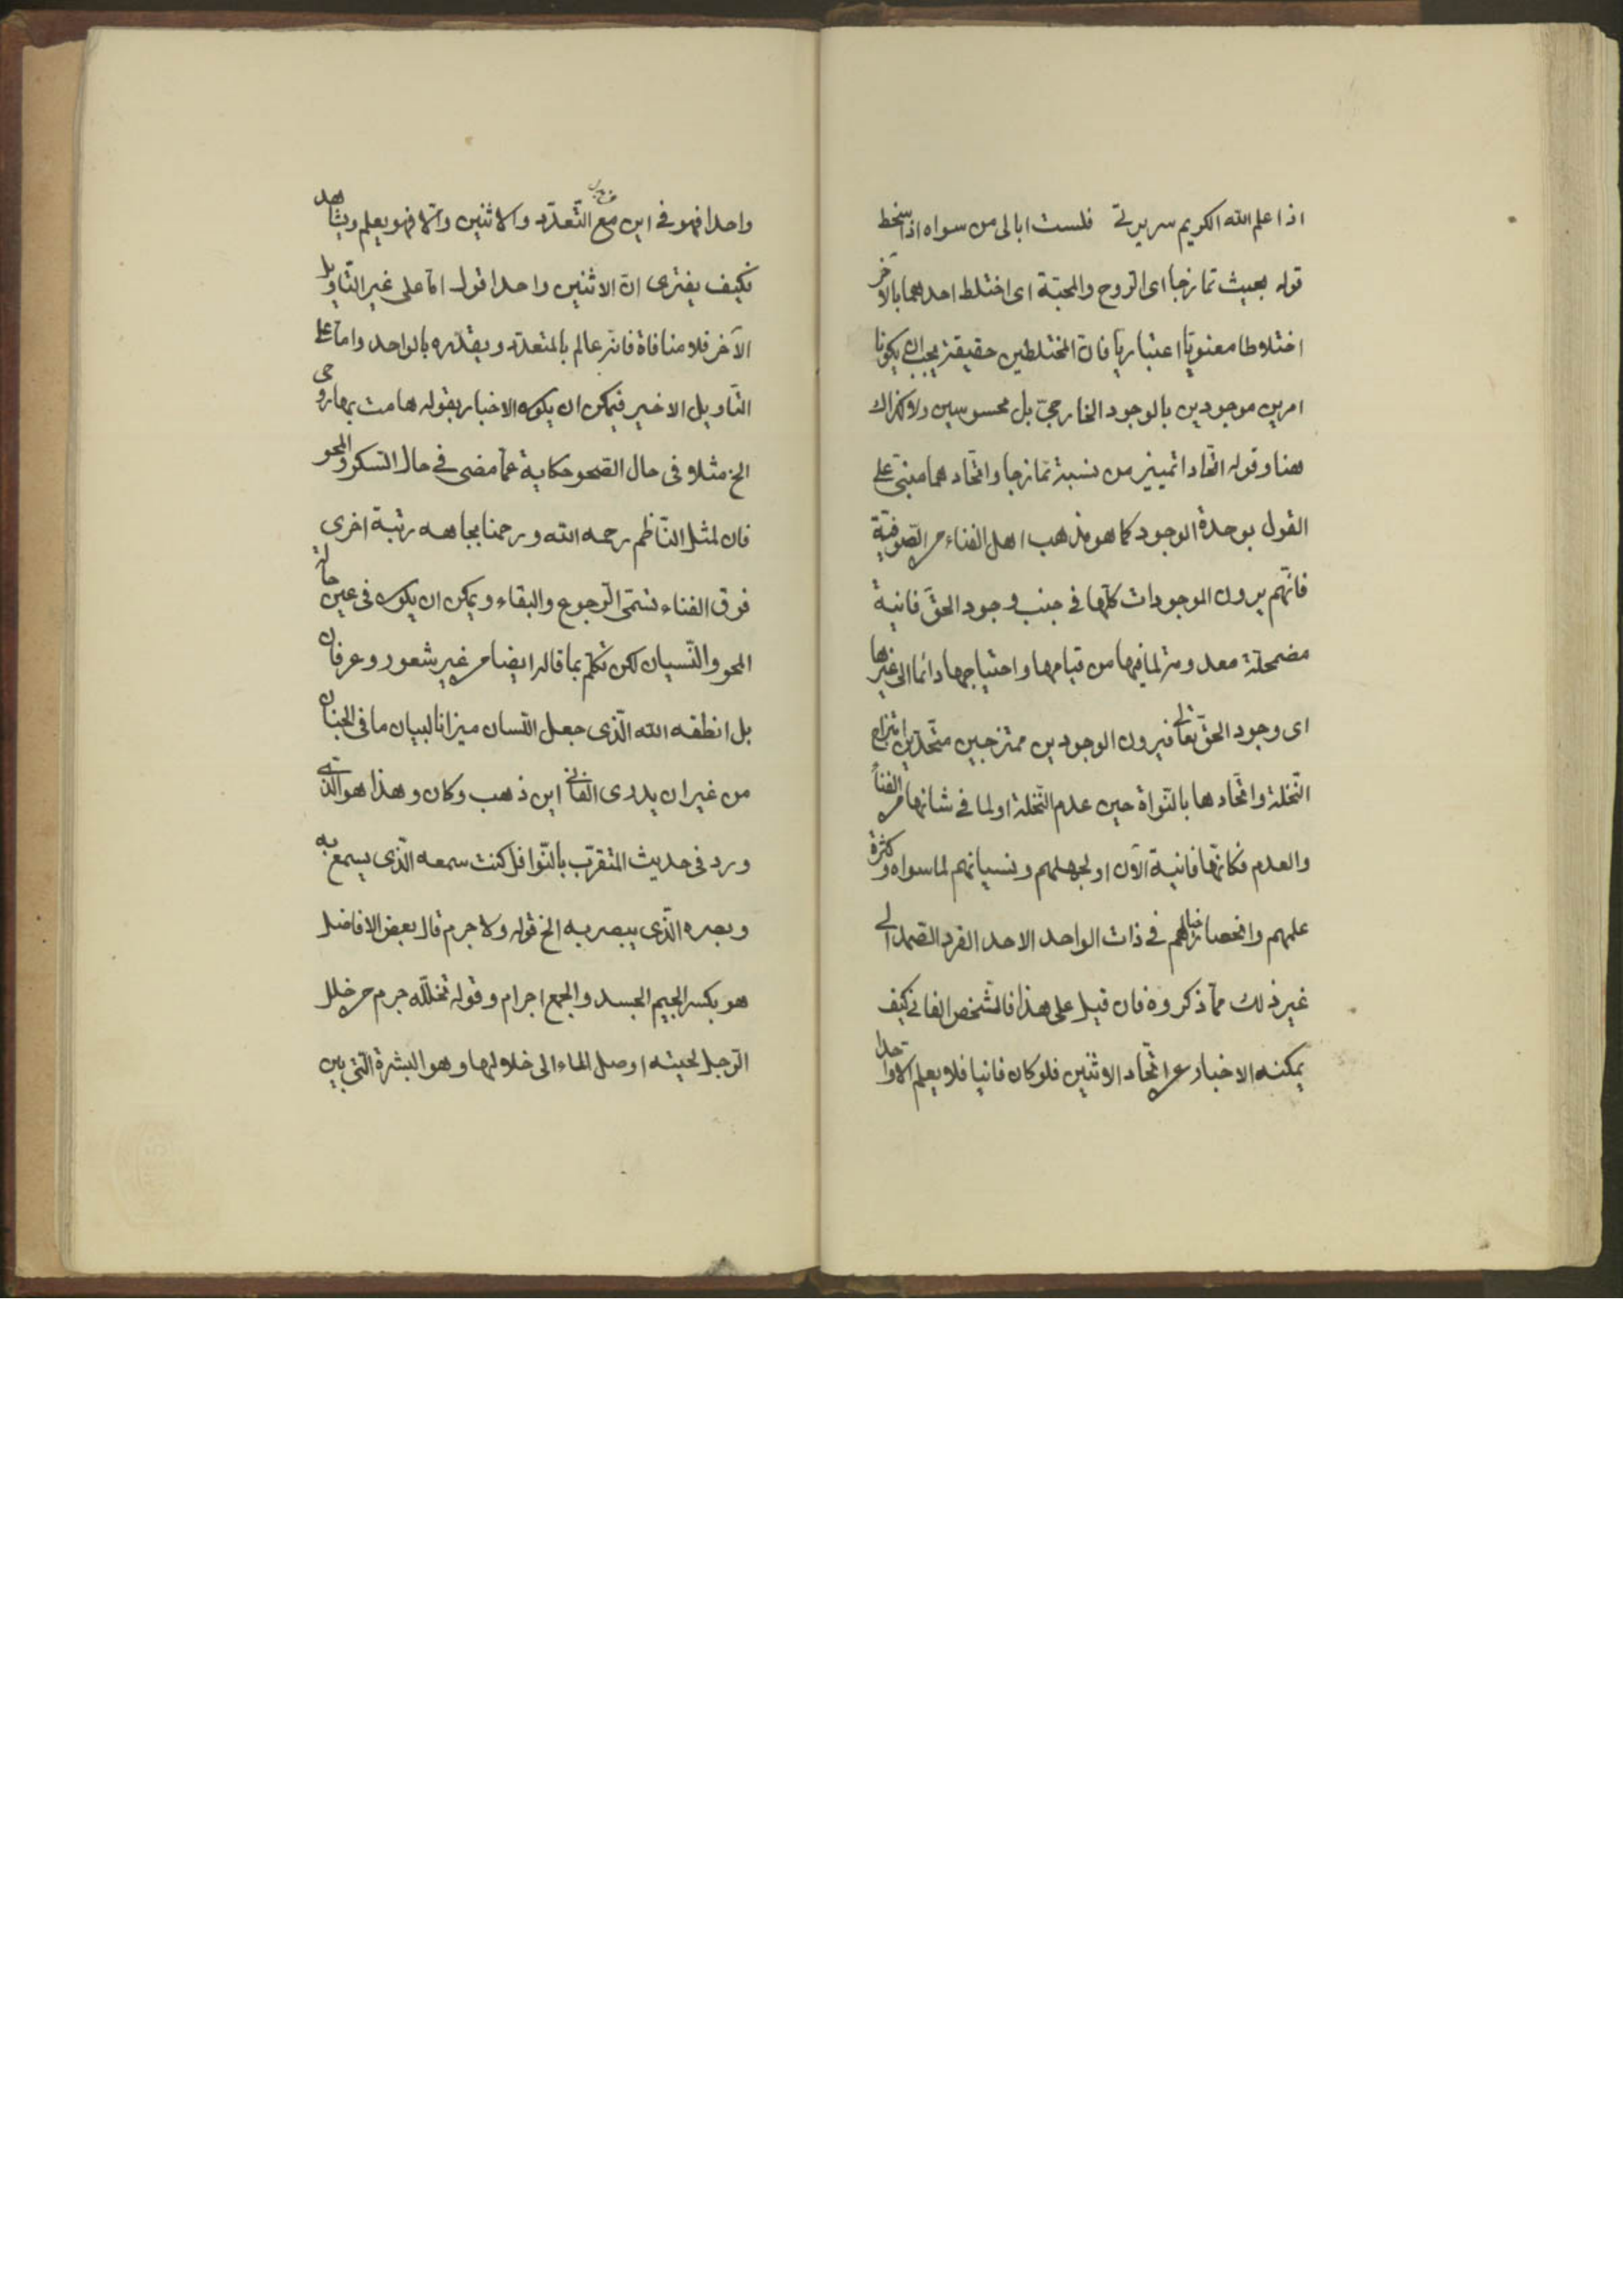 اذا علم الله الكريم سريرتي فلست ابالى من سواه اذا سخط
قوله بحيث تمازجا اى الروح والمحبّة اى اختلط احدهما بالآخر
اختلاطا معنويّا اعتباريّا فانّ المختلطين حقيقة يجب ان يكونا
امرين موجودين بالوجود الخارجىّ بل محسوسين ولا كذلك
هنا وقوله اتّحادا تمييز من نسبة تمازجا واتّحادهما مبنىّ على
القول بوحدة الوجود كما هو مذهب اهل الفناء من الصّوفيّة
فانّهم يرون الموجودات كلّها فى جنب وجود الحقّ فانية
مضمحلّة معدومة لما فيها من قيامها واحتياجها دائما الى غيرها
اى وجود الحقّ تعالى فيرون الوجودين ممتزجين متّحدين امتزاج
النّخلة واتّحادها بالنّواة حين عدم النّخلة او لما فى شانها من الفناء
والعدم فكانّها فانية الآن او لجهلهم ونسيانهم لما سواه وكثرة
علمهم وانحصار خيالهم فى ذات الواحد الاحد الفرد الصّمد الى
غير ذلك ممّا ذكروه فان قيل على هذا فالشّخص الفانى كيف
يمكنه الاخبار عن اتّحاد الاثنين فلو كان فانيا فلا يعلم الا واحدا
واحدا فهو فى اين مع التّعدّد والاثنين والّا فهو يعلم ويشاهد
فكيف يفترى انّ الاثنين واحدا قول امّا على غير التّاويل
الآخر فلا منافاة فانّه عالم بالمتعدّد ويقدّره بالواحد وامّا على
التّاويل الاخير فيمكن ان يكون الاخبار بقوله هامت بها روحى
الخ مثلا فى حال الصّحو حكاية عمّا مضى فى حال السّكر والمحو
فان لمثل النّاظم رحمه الله ورحمنا بجاهه رتبة اخرى
فوق الفناء تسمّى الرّجوع والبقاء ويمكن ان يكون فى عين حالة
المحو والنّسيان لكن تكلّم بما قاله ايضا من غير شعور وعرفان
بل انطقه الله الّذى جعل اللّسان ميزانا لبيان ما فى الجنان
من غير ان يدرى الفانى اين ذهب وكان وهذا هو الّذى
ورد فى حديث المتقرّب بالنّوافل كنت سمعه الّذى يسمع به
وبصره الّذى يبصر به الخ قوله ولا جرم قال بعض الافاضل
هو بكسر الجيم الجسد والجمع اجرام وقوله تخلّله جرم من خلل
الرّجل لحيته اوصل الماء الى خلالها وهو البشرة الّتى بين